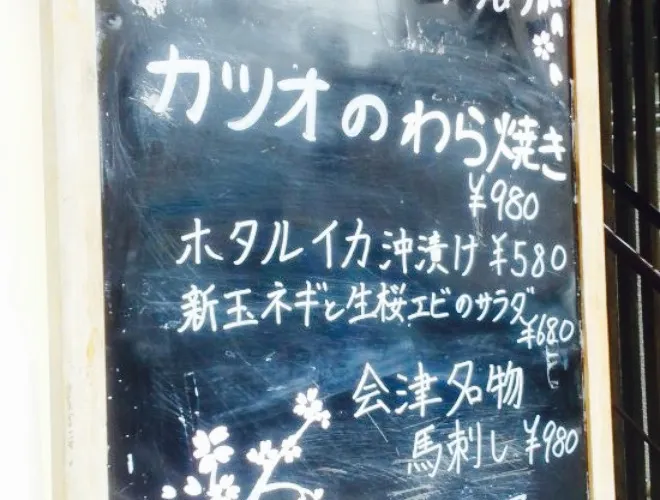 カツオのわら焼き
¥980
ホタルイカ沖漬け ¥580
新玉ネギと生桜エビのサラダ
¥680
会津名物
馬刺し ¥980